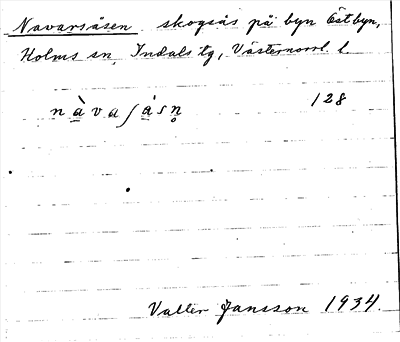 Navarsåsen skogsås på byn Östbyn,
Holms sn, Indals tg, Västernorrl. l.
128
Valter Jansson 1934.